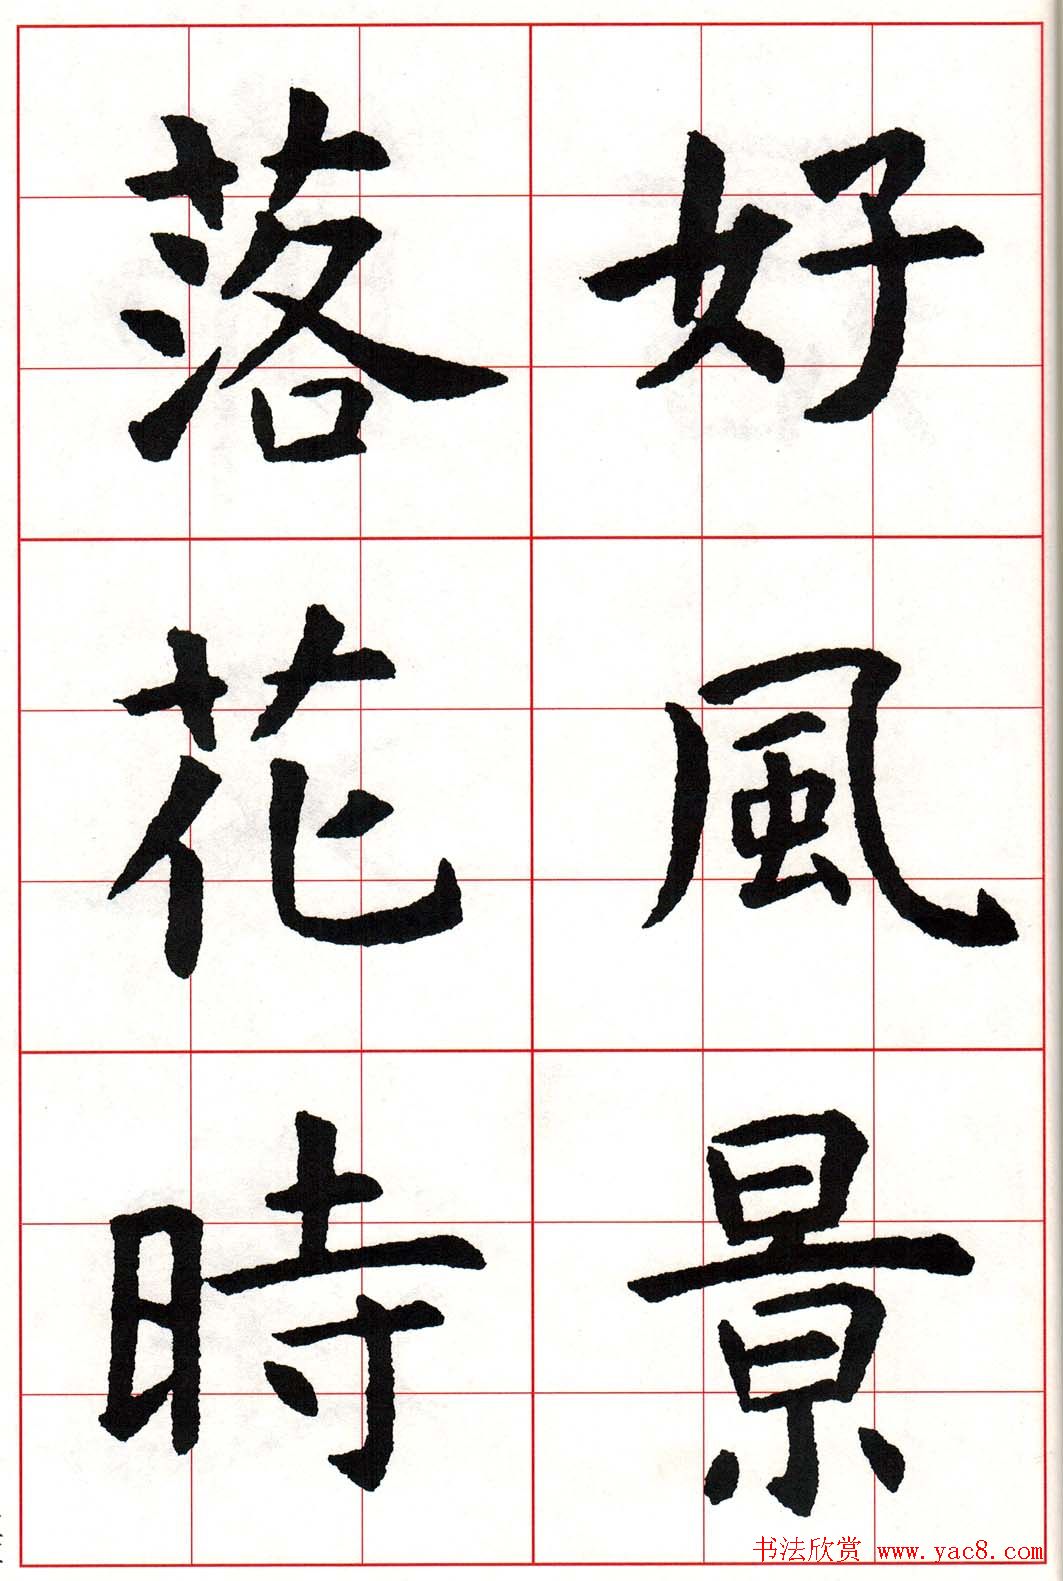 好風景
落花時
书法欣赏 www.yac8.com